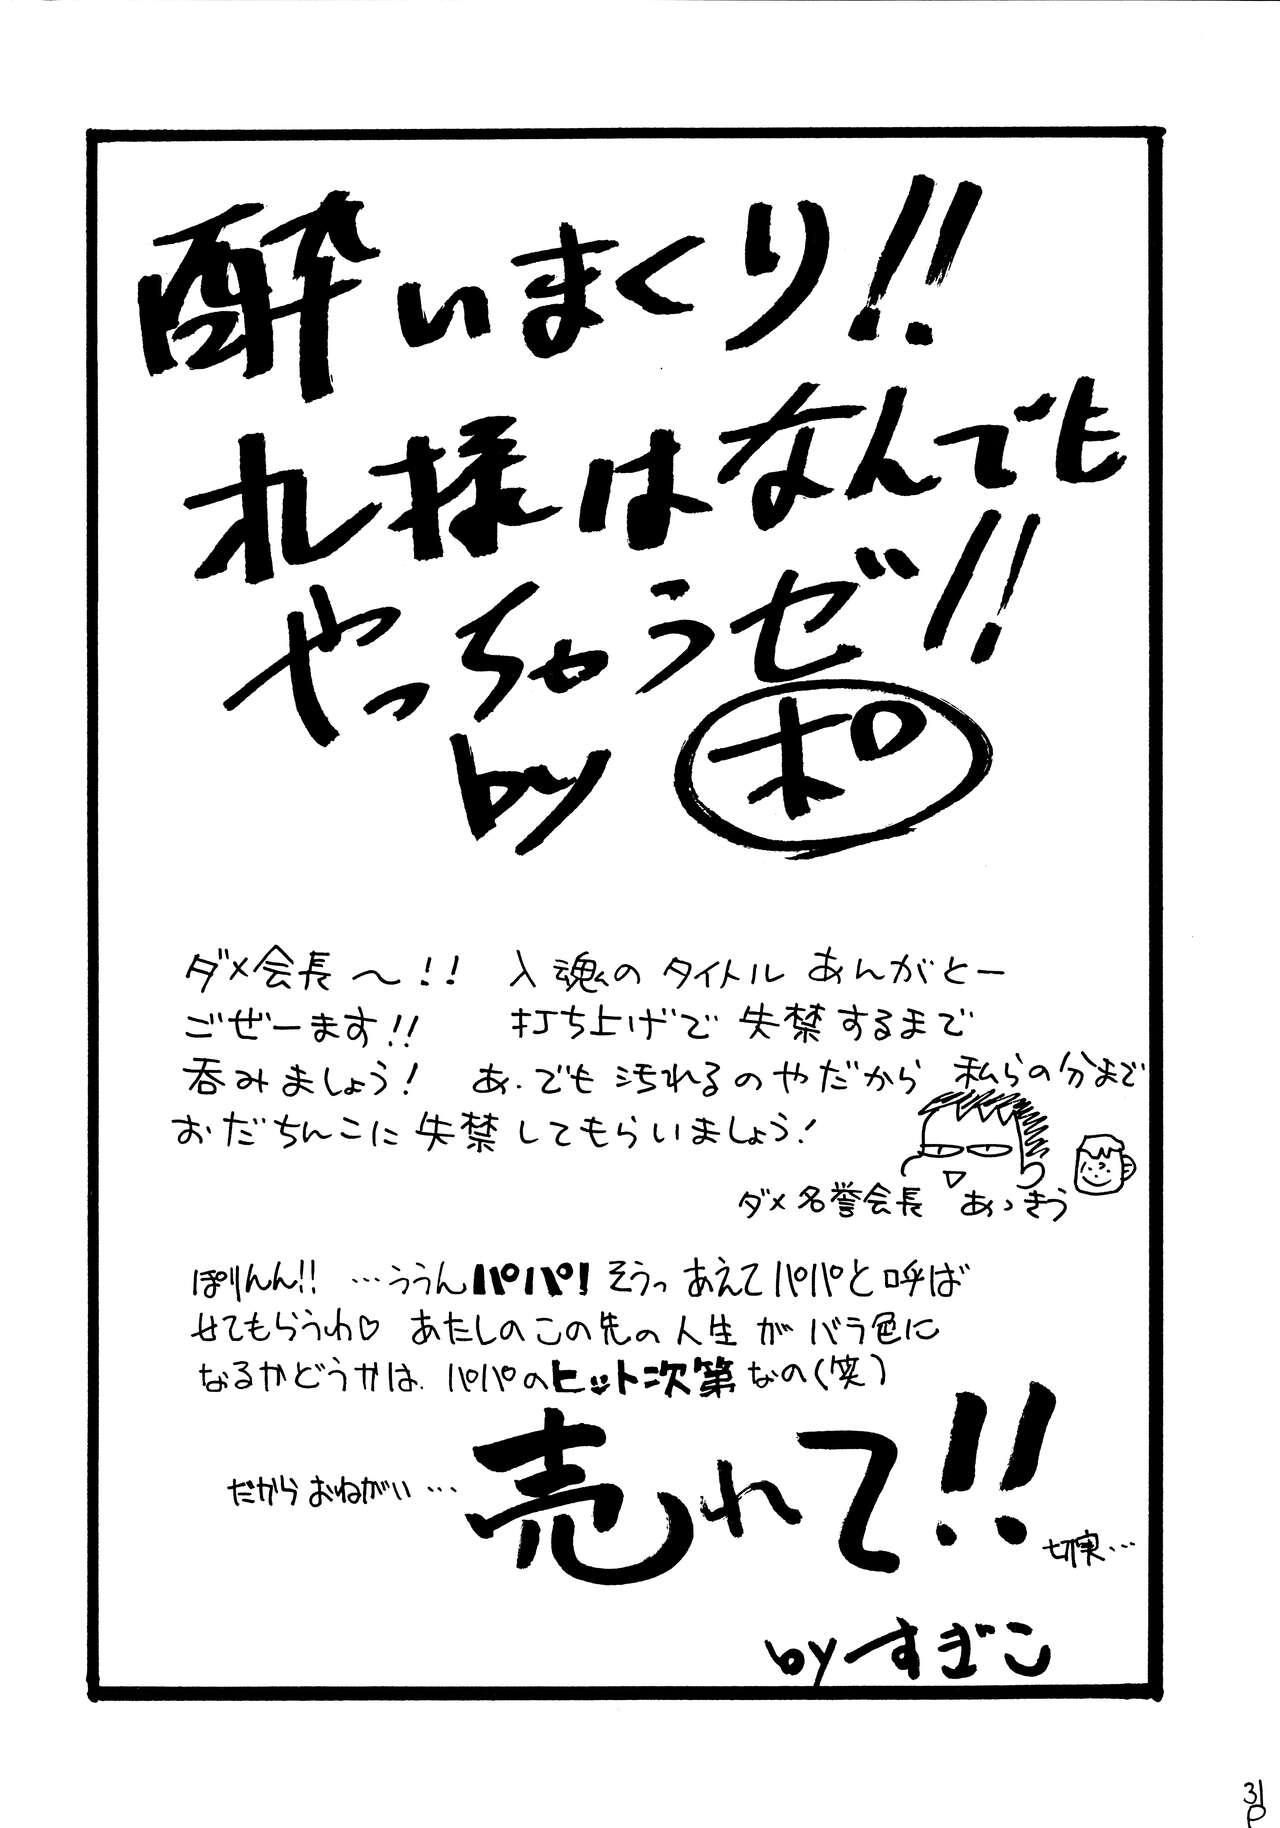 酔いまくり!!
オレ様はなんでも
やっちゃうゼ!!
by ポ
ダメ会長〜!! 入魂のタイトル あんがとー
ごぜーます!! 打ち上げで 失禁するまで
呑みましょう! あ.でも 汚れるのやだから 私らの分まで
おだちんこに 失禁してもらいましょう!
ダメ名誉会長 あっきう
ぽりんん!! …ううんパパ! そうっ あえてパパと呼ば
せてもらうわ♡ あたしのこの先の人生が バラ色に
なるかどうかは パパのヒット次第なの(笑)
だからおねがい… 売れて!! 切実…
by すぎこ
31P